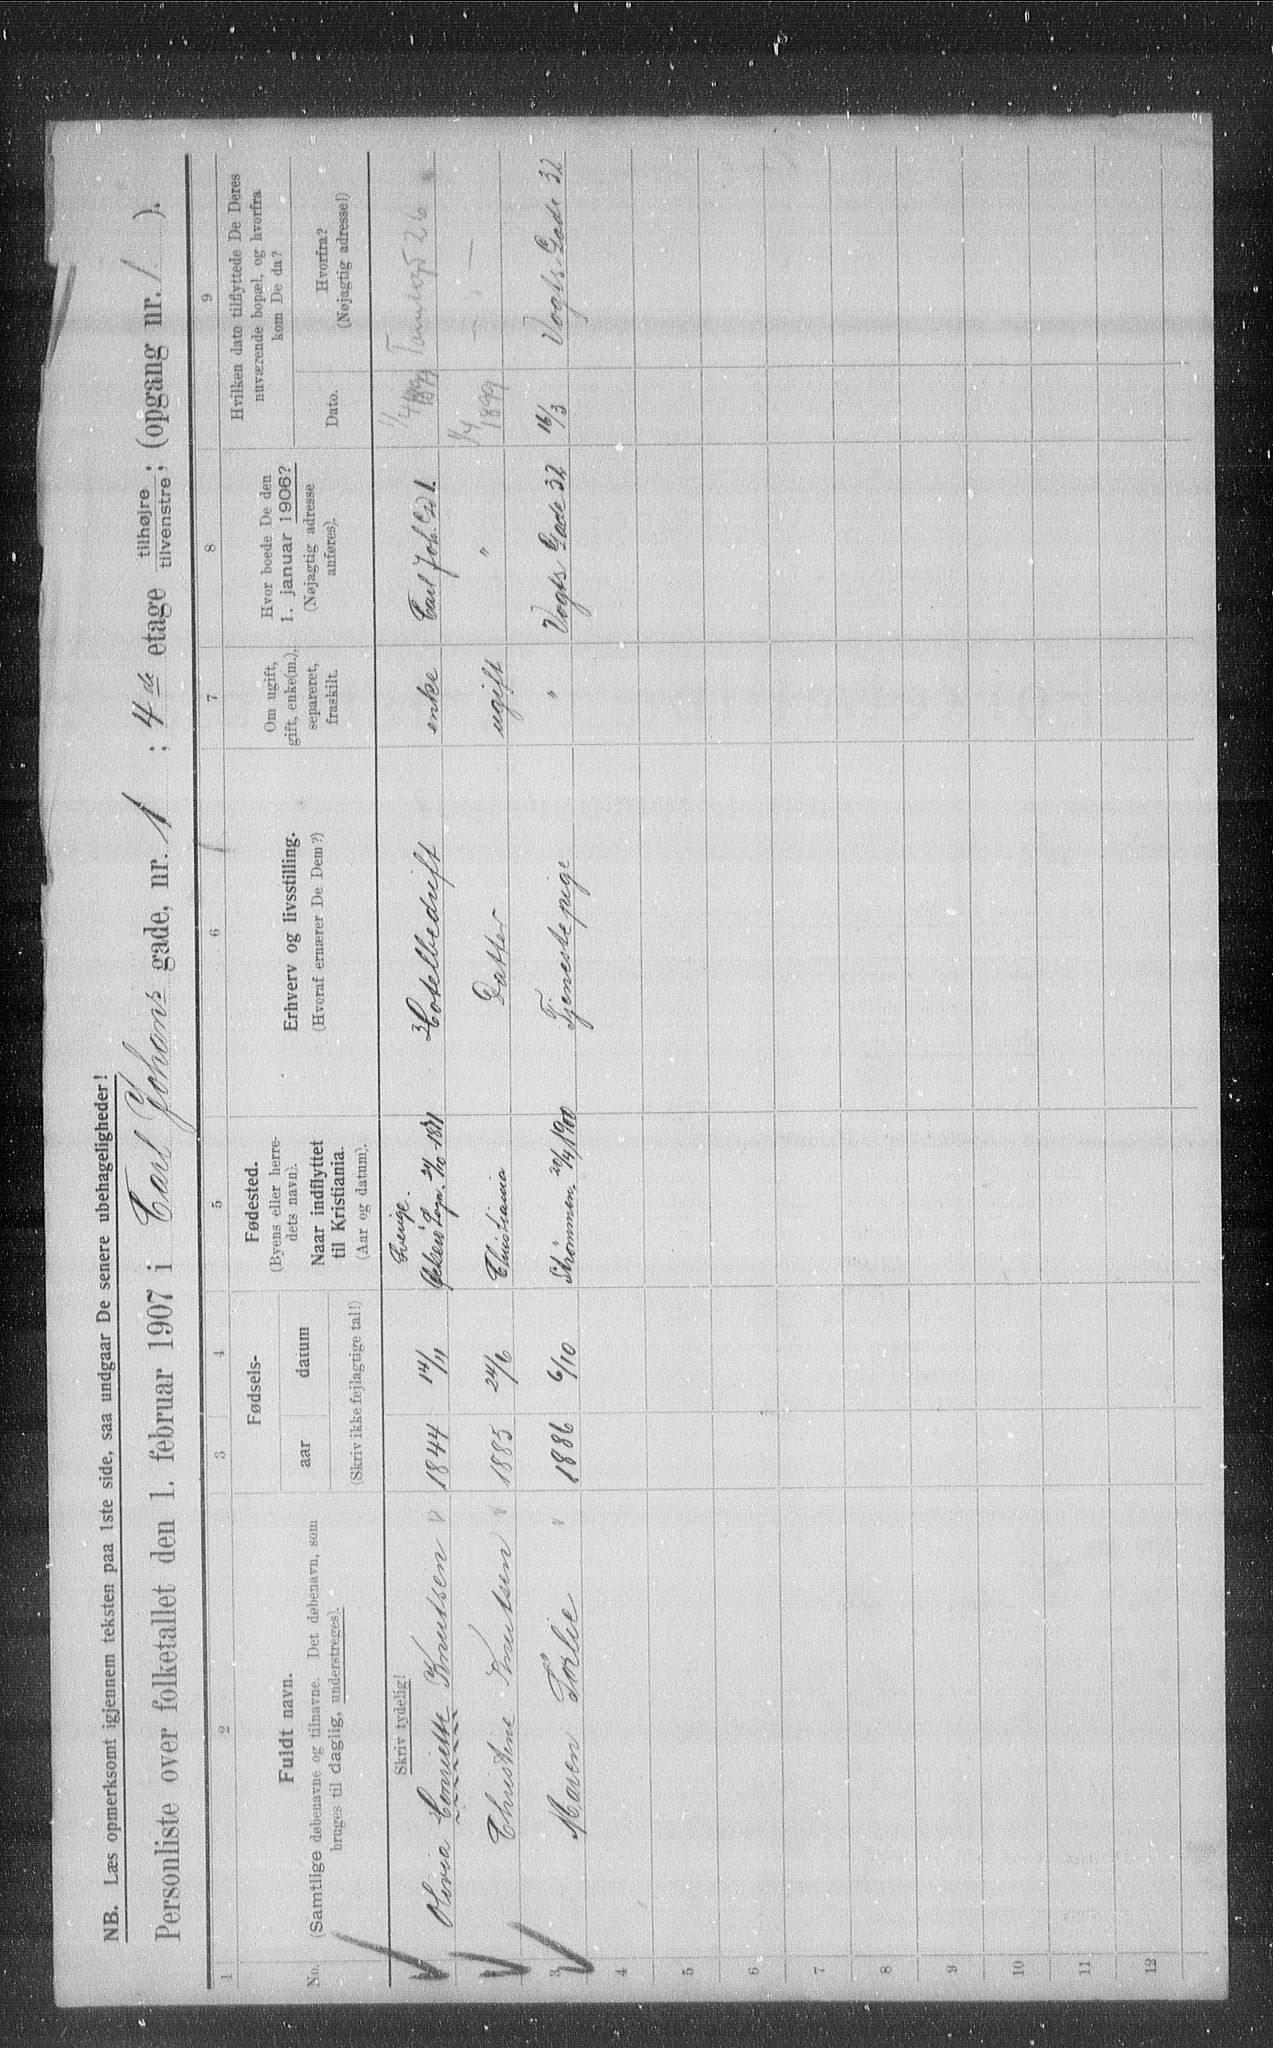 NB. Læs opmerksomt igjennem teksten paa 1ste side, saa undgaar De senere ubehageligheder!
Personliste over folketallet den 1. februar 1907 i Carl Johans gade, nr. 1 ; 4de etage tilhøjre ; tilvenstre ; (opgang nr. 1 ).
1 2 3 4 5 6 7 8 9
No.
Fuldt navn.
(Samtlige døbenavne og tilnavne. Det døbenavn, som
bruges til daglig, understreges).
Fødsels-
aar datum
(Skriv ikke fejlagtige tal!)
Fødested.
(Byens eller herre-
dets navn).
Naar indflyttet
til Kristiania.
(Aar og datum).
Erhverv og livsstilling.
(Hvoraf ernærer De Dem?)
Om ugift,
gift, enke(m.),
separeret,
fraskilt.
Hvor boede De den
1. januar 1906?
(Nøjagtig adresse
anføres).
Hvilken dato tilflyttede De Deres
nuværende bopæl, og hvorfra
kom De da?
Dato.
Hvorfra?
(Nøjagtig adresse!)
Skriv tydelig!
Olivia Henriette Knutsen v 1844 14/11 Sverige. Sogn. 1871 Hotelbedrift enke Carl Joh. Gd 1. 1/4 1899 Tomtegd 26
Christine Knutsen v 1885 24/6 Christiania Datter ugift " 1/4 1899 — " —
3 Maren Torlie v 1886 6/10 Strømmen. 20/4 1900 Tjenestepige " Vogts Gade 32 16/3 Vogts Gade 32
4
5
6
7
8
9
10
11
12